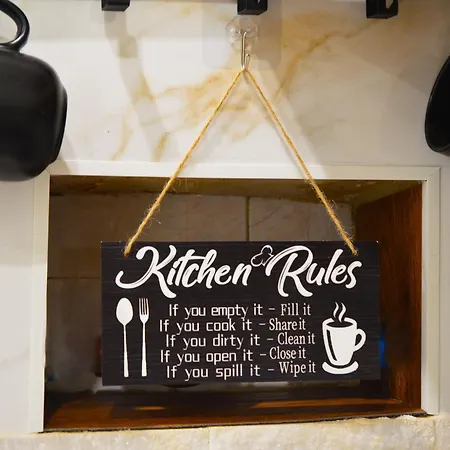 Kitchen Rules
If you empty it - Fill it
If you cook it - Share it
If you dirty it - Clean it
If you open it - Close it
If you spill it - Wipe it